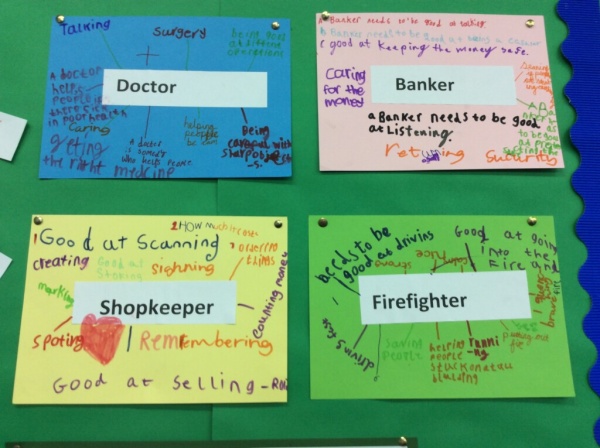 Talking
surgery
being good
at different
operations
Doctor
A doctor
helps
people if
there sick or
in poor health
caring
geting
the right
medicine
A doctor
is someone
who helps people
helping
people
Being
careful with
sharp objects
A Banker needs to be good at talking.
B Bankers need to be good at
C good at keeping the money safe.
Caring
for the
money
Banker
a Banker needs to be good
at Listening.
returning
security
1 Good at Scanning
2 HOW much it cost
3 ordering
things
creating
Good at
Storing
sighning
marking
Shopkeeper
counting money
spoting
Remembering
Good at Selling
needs to be
good at driving
Good at going
into the
Fire and
strong
Firefighter
brave
driving fast
Saving
People
helping
people
stuck on a
building
runni
-ng